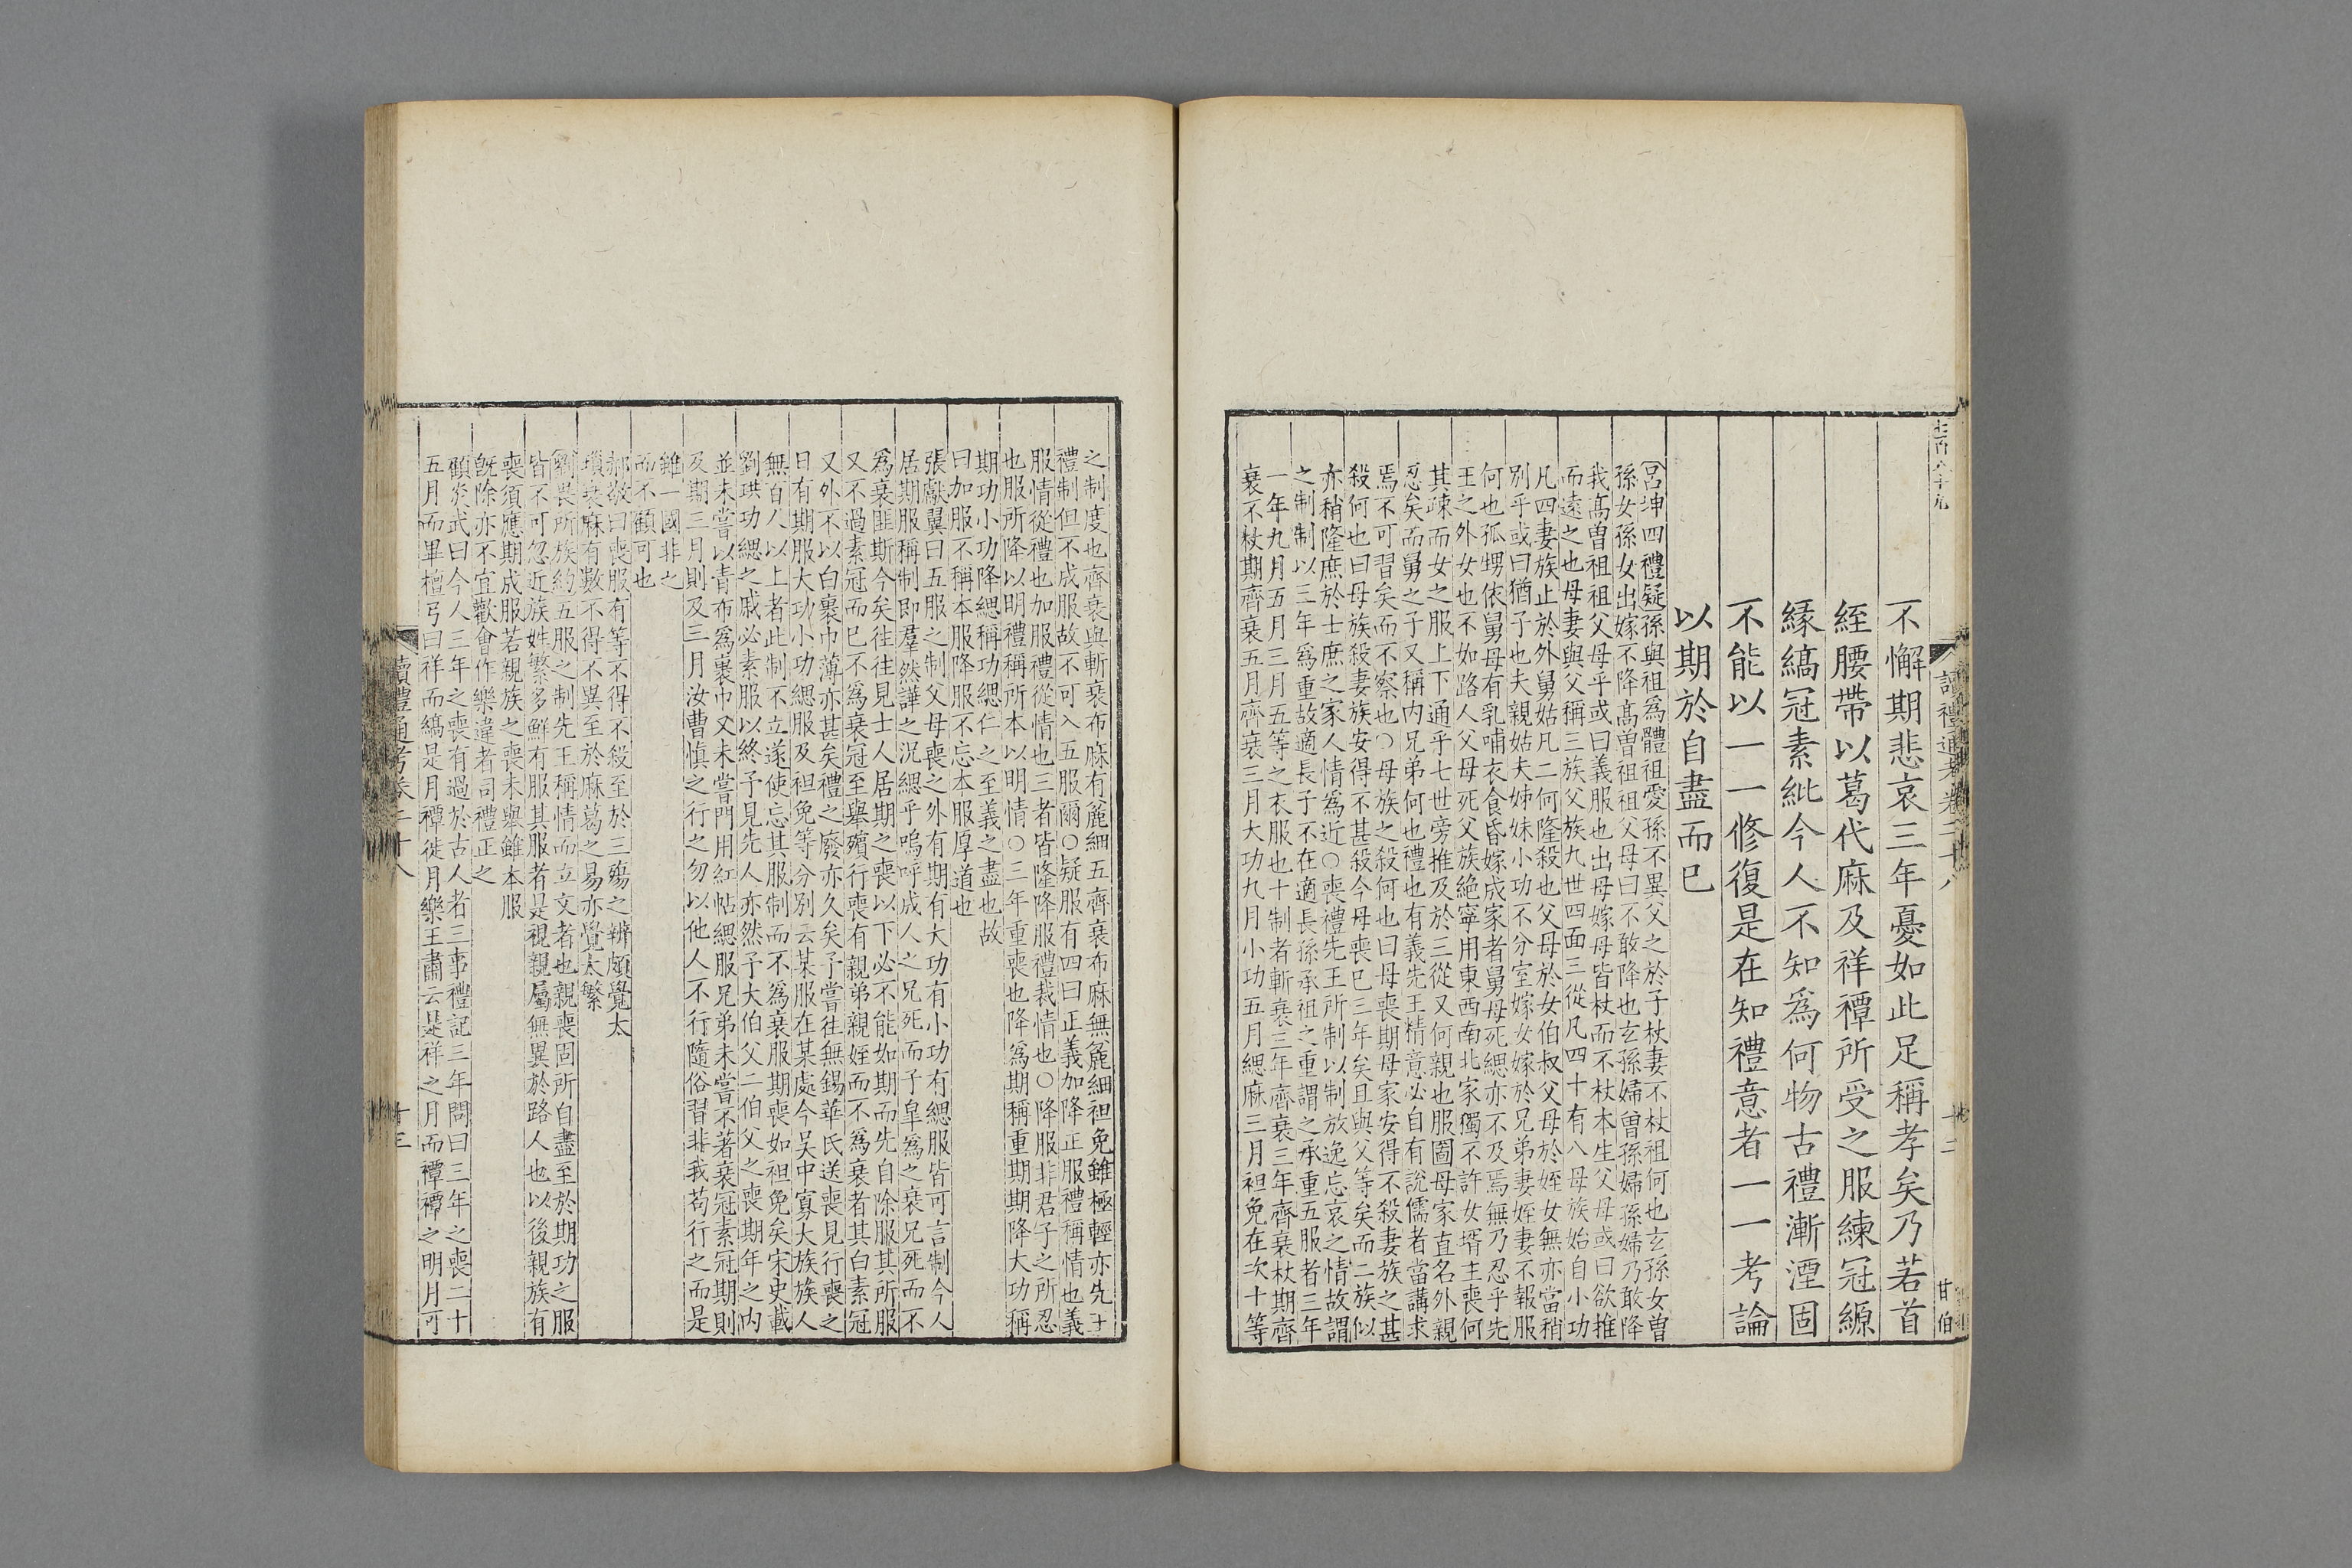 讀禮通考卷二十八
十二
甘伯
不懈期悲哀三年憂如此足稱孝矣乃若首
絰腰帶以葛代麻及祥禫所受之服練冠縓
緣縞冠素紕今人不知爲何物古禮漸湮固
不能以一一修復是在知禮意者一一考論
以期於自盡而已
呂坤四禮疑孫與祖爲體祖愛孫不異父之於子杖妻不杖祖何也玄孫女曾
孫女孫女出嫁不降高曾祖祖父母曰不敢降也玄孫婦曾孫婦孫婦乃敢降
我高曾祖祖父母乎或曰義服也出母嫁母皆杖而不杖本生父母或曰欲推
而遠之也母妻與父稱三族父族九世四面三從凡四十有八母族始自小功
凡四妻族止於外舅姑凡二何隆殺也父母於女伯叔父母於姪女無亦當稍
別乎或曰猶子也夫親姑夫姊妹小功不分室嫁女嫁於兄弟妻姪妻不報服
何也孤甥依舅母有乳哺衣食昏嫁成家者舅母死緦亦不及焉無乃忍乎先
王之外女也不如路人父母死父族絶寧用東西南北家獨不許女壻主喪何
其疎而女之服上下通乎七世旁推及於三從又何親也服圖母家直名外親
忍矣而舅之子又稱内兄弟何也禮也有義先王精意必自有說儒者當講求
焉不可習矣而不察也○母族之殺何也曰母喪期母家安得不殺妻族之甚
殺何也曰母族殺妻族安得不甚殺今母喪已三年矣且與父等矣而二族似
亦稍隆庶於士庶之家人情爲近○喪禮先王所制以制放逸忘哀之情故謂
之制制以三年爲重故適長子不在適長孫承祖之重謂之承重五服者三年
一年九月五月三月五等之衣服也十制者斬衰三年齊衰三年齊衰杖期齊
衰不杖期齊衰五月齊衰三月大功九月小功五月緦麻三月袒免在次十等
之制度也齊衰與斬衰布麻有麄細五齊衰布麻無麄細袒免雖極輕亦先王
禮制但不成服故不可入五服爾○疑服有四曰正義加降正服禮稱情也義
服情從禮也加服禮從情也三者皆隆降服禮裁情也○降服非君子之所忍
也服所降以明禮稱所本以明情○三年重喪也降爲期稱重期期降大功稱
期功小功降緦稱功緦仁之至義之盡也故
曰加服不稱本服降服不忘本服厚道也
張獻翼曰五服之制父母喪之外有期有大功有小功有緦服皆可言制今人
居期服稱制即羣然譁之況緦乎嗚呼成人之兄死而子皐爲之衰兄死而不
爲衰匪斯今矣往往見士人居期之喪以下必不能如期而先自除服其所服
又不過素冠而已不爲衰冠至舉殯行喪有親弟親姪而不爲衰者其白素冠
又外不以白裹巾薄亦甚矣禮之廢亦久矣予嘗往無錫華氏送喪見行喪之
日有期服大功小功緦服及袒免等分別云某服在某處今吴中寡大族族人
無百人以上者此制不立遂使忘其服制而不爲衰服期喪如袒免矣宋史載
劉珙功緦之戚必素服以終予見先人亦然予大伯父二伯父之喪期年之内
並未嘗以青布爲裹巾又未嘗門用紅帖緦服兄弟未嘗不著衰冠素冠期則
及期三月則及三月汝曹慎之行之勿以他人不行隨俗習非我苟行之而是
雖一國非之
而不顧可也
郝敬曰喪服有等不得不殺至於三殤之辨頗覺太
瑣衰麻有數不得不異至於麻葛之易亦覺太繁
劉畏所族約五服之制先王稱情而立文者也親喪固所自盡至於期功之服
皆不可忽近族姓繁多鮮有服其服者是視親屬無異於路人也以後親族有
喪須應期成服若親族之喪未舉雖本服
旣除亦不宜歡會作樂違者司禮正之
顧炎武曰今人三年之喪有過於古人者三事禮記三年問曰三年之喪二十
五月而畢檀弓曰祥而縞是月禫徙月樂王肅云是祥之月而禫禫之明月可
讀禮通考卷二十八
十三